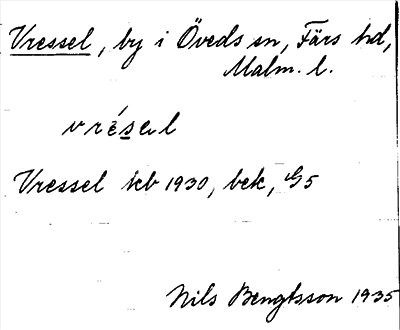 Vressel, by i Öveds sn, Färs hd,
Malm. l.
vrésəl
Vressel kb 1930, bek, G5
Nils Bengtsson 1935